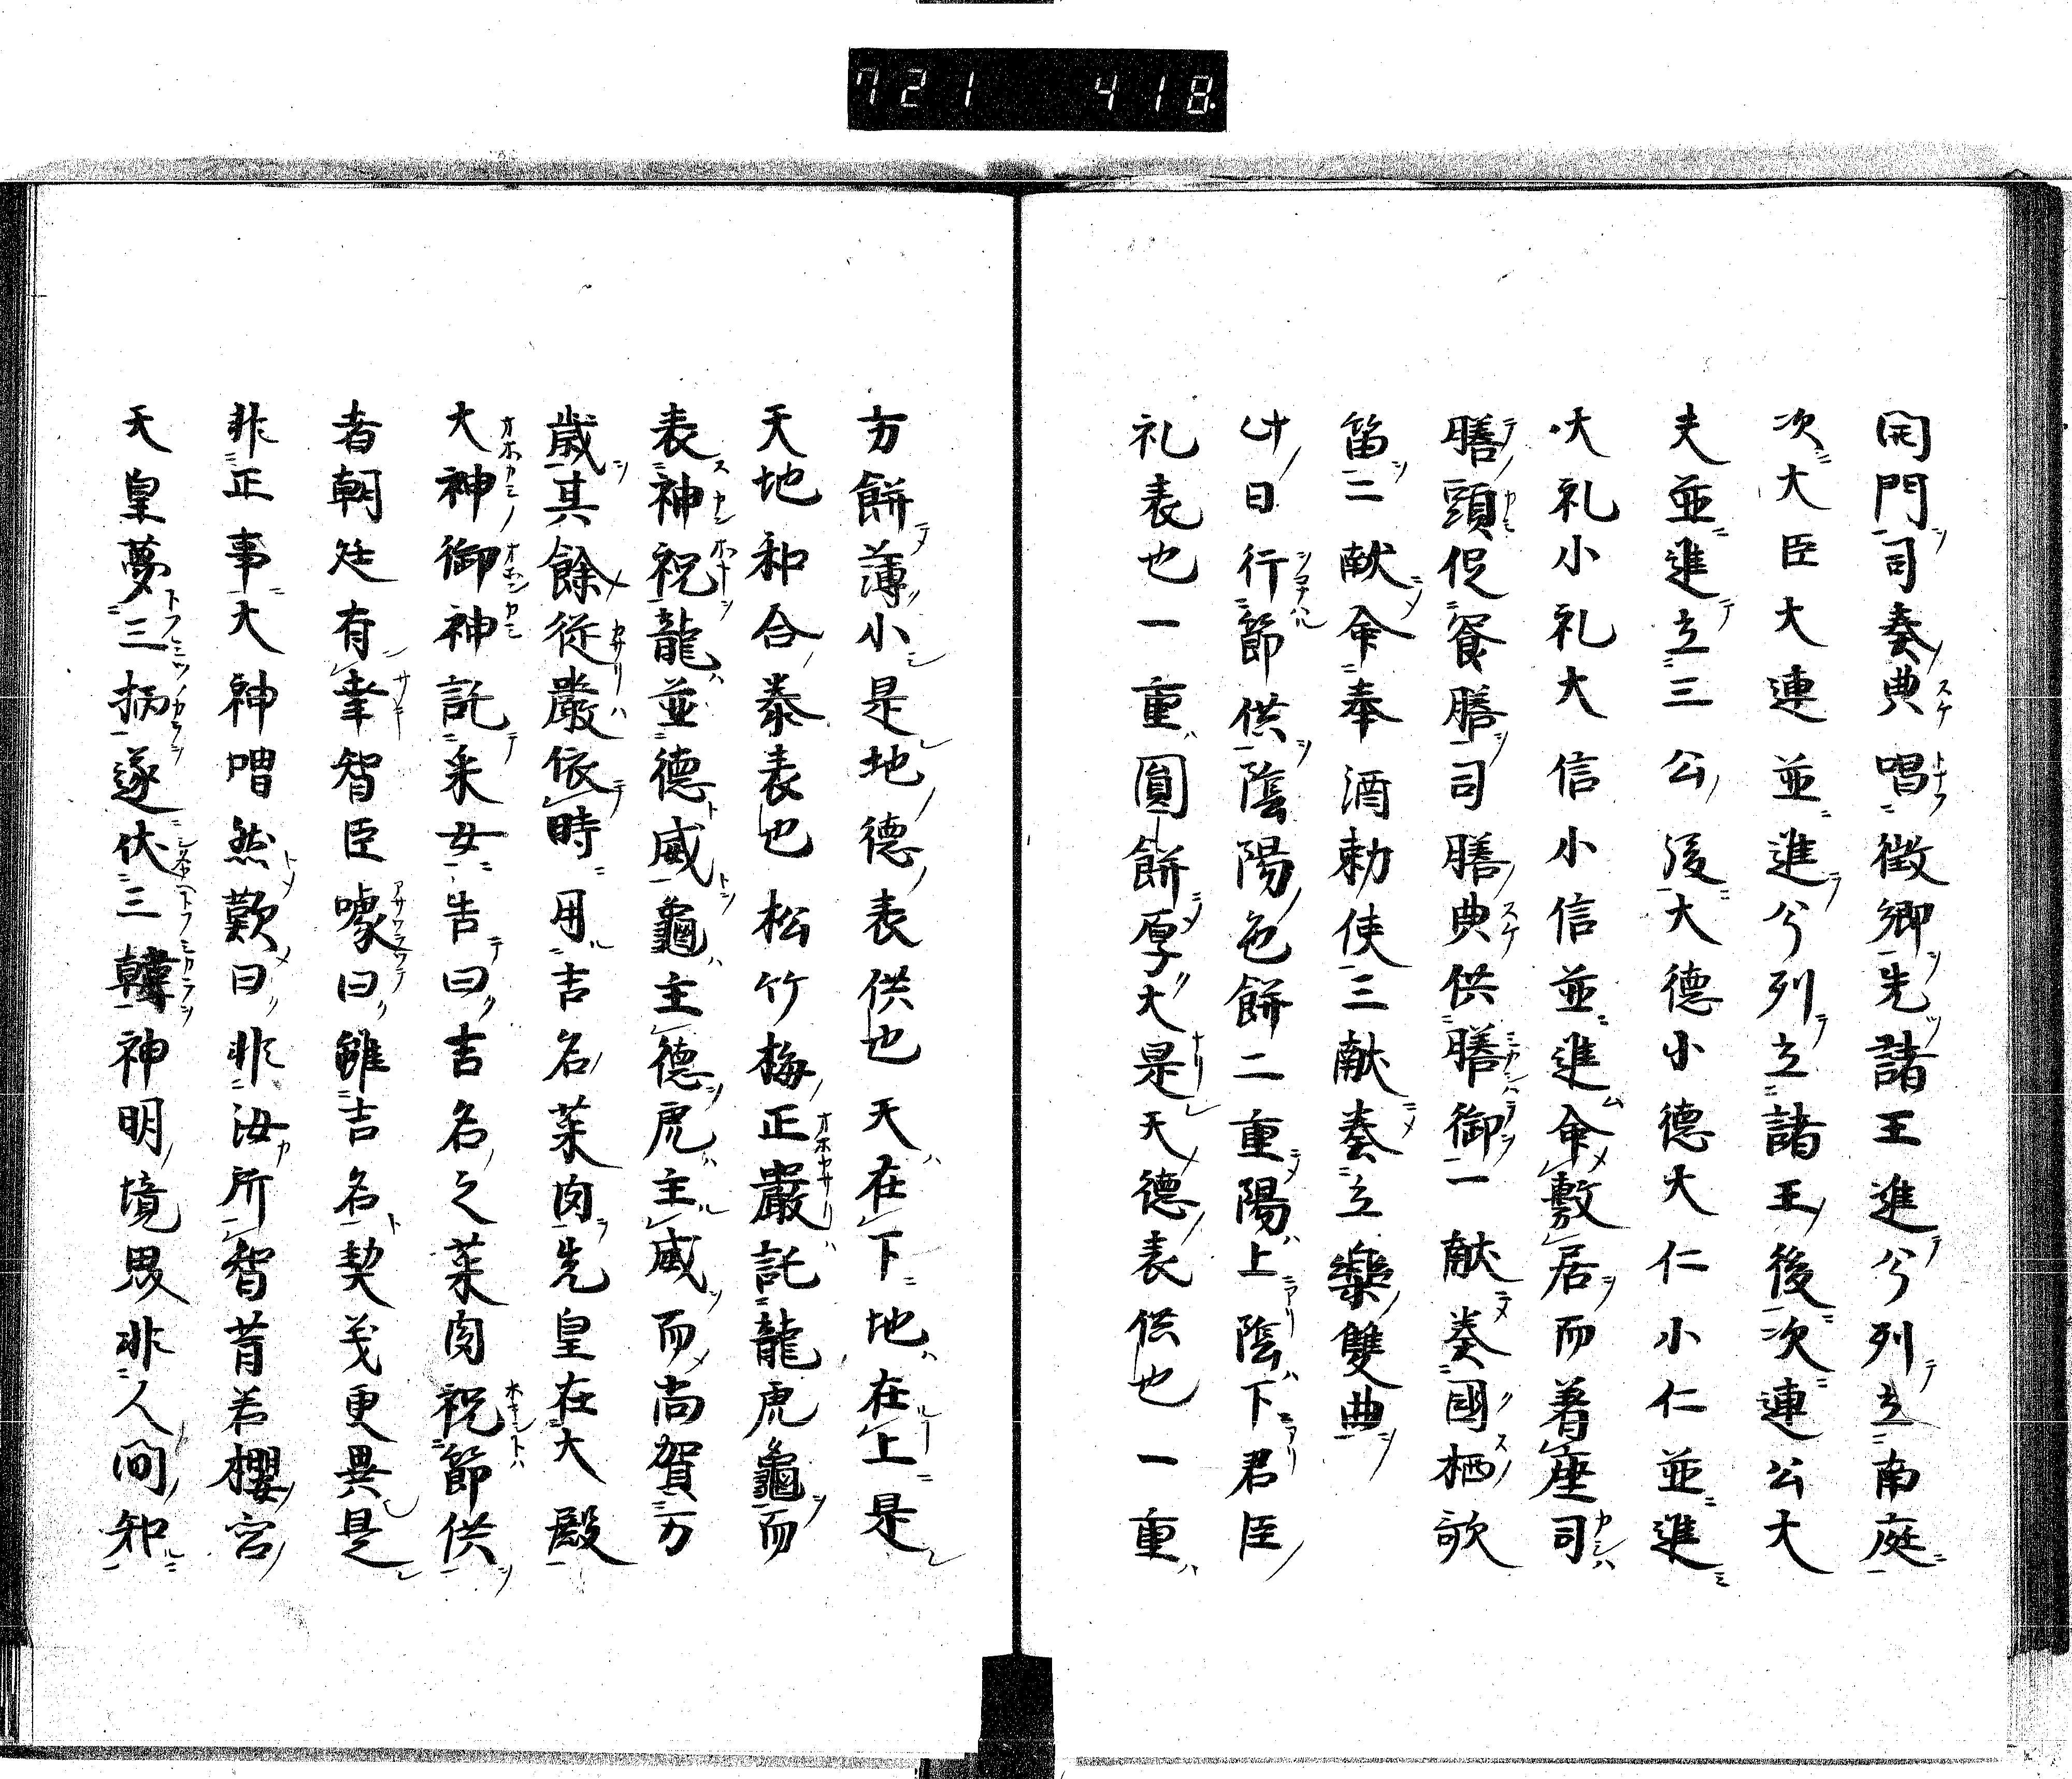 721 418.
開門司奏典唱徴卿先諸王進兮列立南庭
次大臣大連並進兮列立諸王後次連公大
夫並進立三公後大德小德大仁小仁並進
大礼小礼大信小信並進命敷居而着座司
膳頭促餐膳司膳典供膳御一献奏國栖歌
笛二献命奉酒勅使三献奏立樂雙曲
此日行節供陰陽色餅二重陽上陰下君臣
礼表也一重圓餅厚大是天德表供也一重
方餅薄小是地德表供也天在下地在上是
天地和合泰表也松竹梅正嚴託龍虎龜而
表神祝龍並德威龜主德虎主威而尚賀万
歳其餘從嚴依時用吉名菜肉先皇在大殿
大神御神託釆女告曰吉名之菜肉祝節供
者朝廷有幸智臣噱曰雖吉名契戔更異是
非正事大神喟然歎曰非汝所智昔若櫻宮
天皇夢三柄遂伏三韓神明境界非人間知